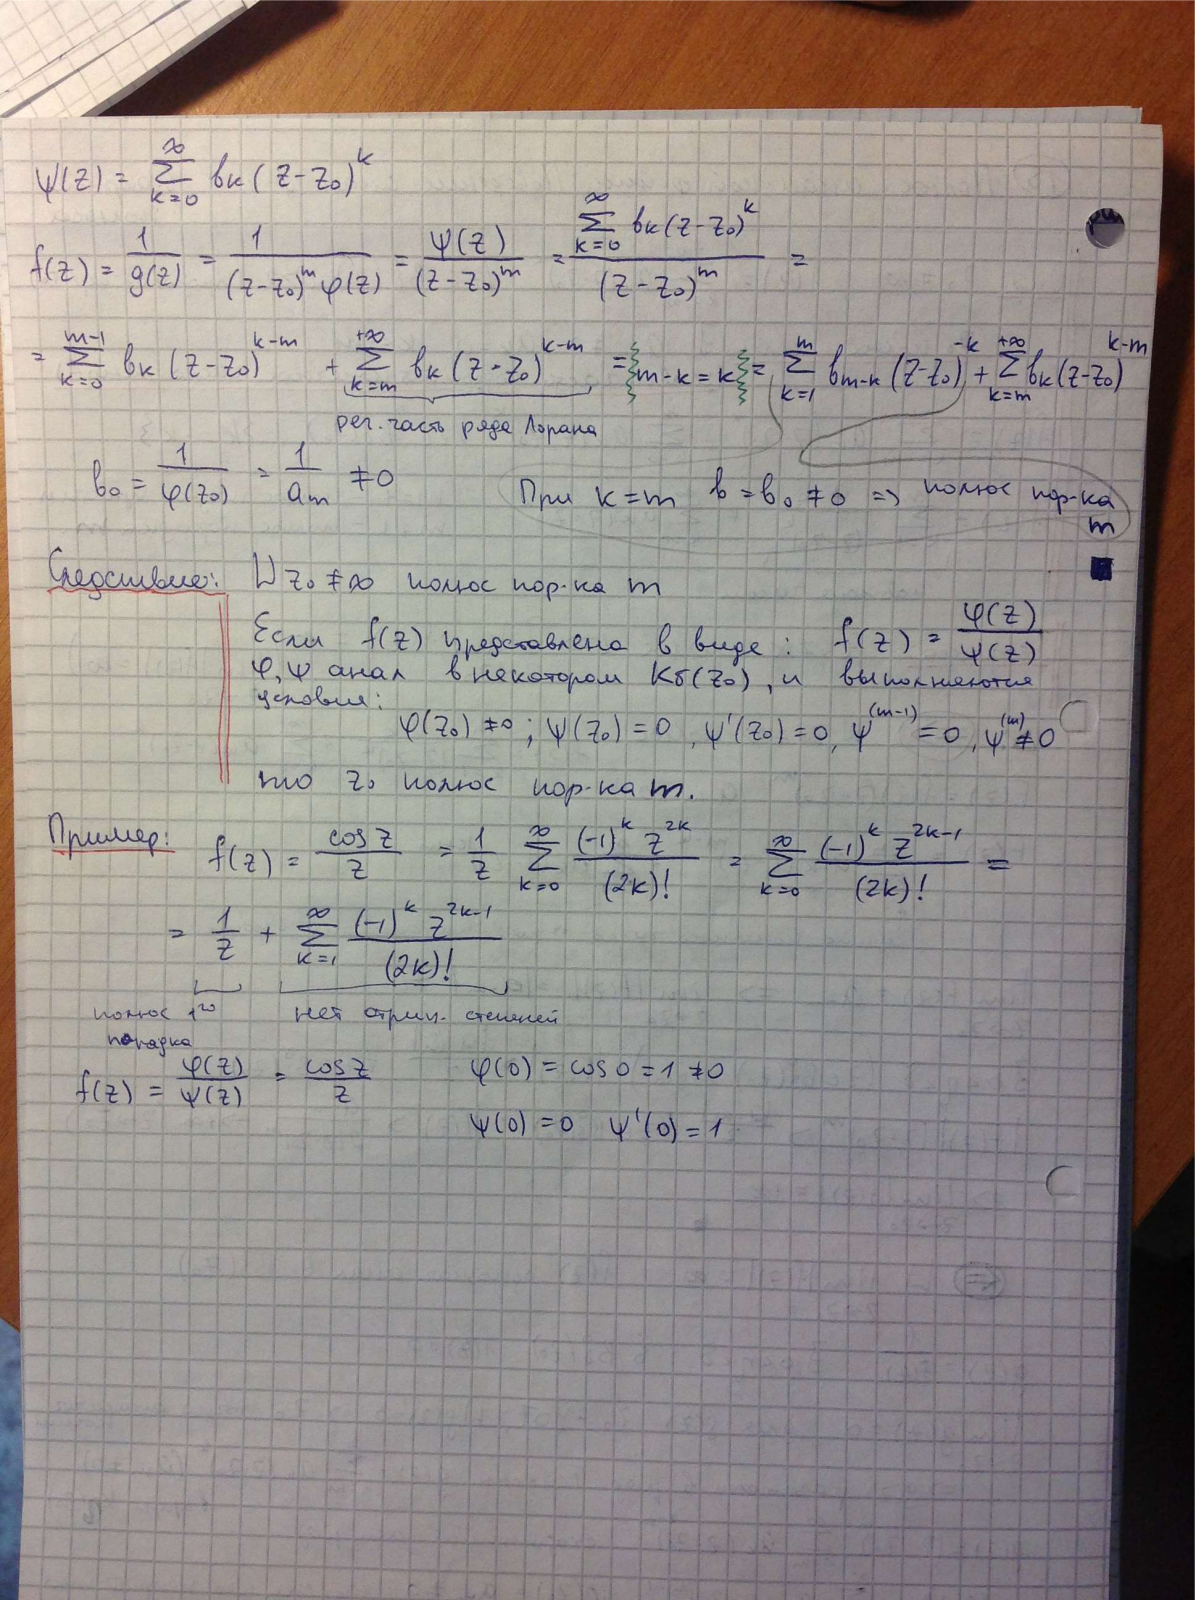 ψ(z) = ∑_{k=0}^{∞} b_k (z-z₀)^k
f(z) = 1/g(z) = 1/((z-z₀)^m φ(z)) = ψ(z)/(z-z₀)^m = (∑_{k=0}^{∞} b_k (z-z₀)^k)/((z-z₀)^m) =
= ∑_{k=0}^{m-1} b_k (z-z₀)^{k-m} + ∑_{k=m}^{+∞} b_k (z-z₀)^{k-m} = {m-k=k} = ∑_{k=1}^{m} b_{m-k} (z-z₀)^{-k} + ∑_{k=m}^{+∞} b_k (z-z₀)^{k-m}
рег. часть ряда Лорана
b₀ = 1/φ(z₀) = 1/a_m ≠ 0
При k=m b=b₀≠0 => полюс пор-ка
m
Следствие: ⊔ z₀ ≠ ∞ полюс пор-ка m
Если f(z) представлена в виде: f(z) = φ(z)/ψ(z)
φ, ψ анал в некотором Kδ(z₀), и выполняются
условия:
φ(z₀) ≠ 0; ψ(z₀) = 0, ψ'(z₀) = 0, ψ^{(m-1)} = 0, ψ^{(m)} ≠ 0
то z₀ полюс пор-ка m.
Пример: f(z) = cos z / z = 1/z ∑_{k=0}^{∞} (-1)^k z^{2k} / (2k)! = ∑_{k=0}^{∞} (-1)^k z^{2k-1} / (2k)! =
= 1/z + ∑_{k=1}^{∞} (-1)^k z^{2k-1} / (2k)!
полюс 1го нет отриц. степеней
порядка
f(z) = φ(z)/ψ(z) = cos z / z φ(0) = cos 0 = 1 ≠ 0
ψ(0) = 0 ψ'(0) = 1